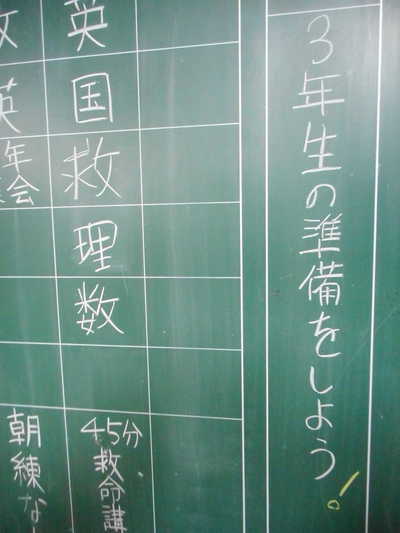 3年生の準備をしよう!
英
国
救
理
数
45分
救命講
英
年
会
朝練な